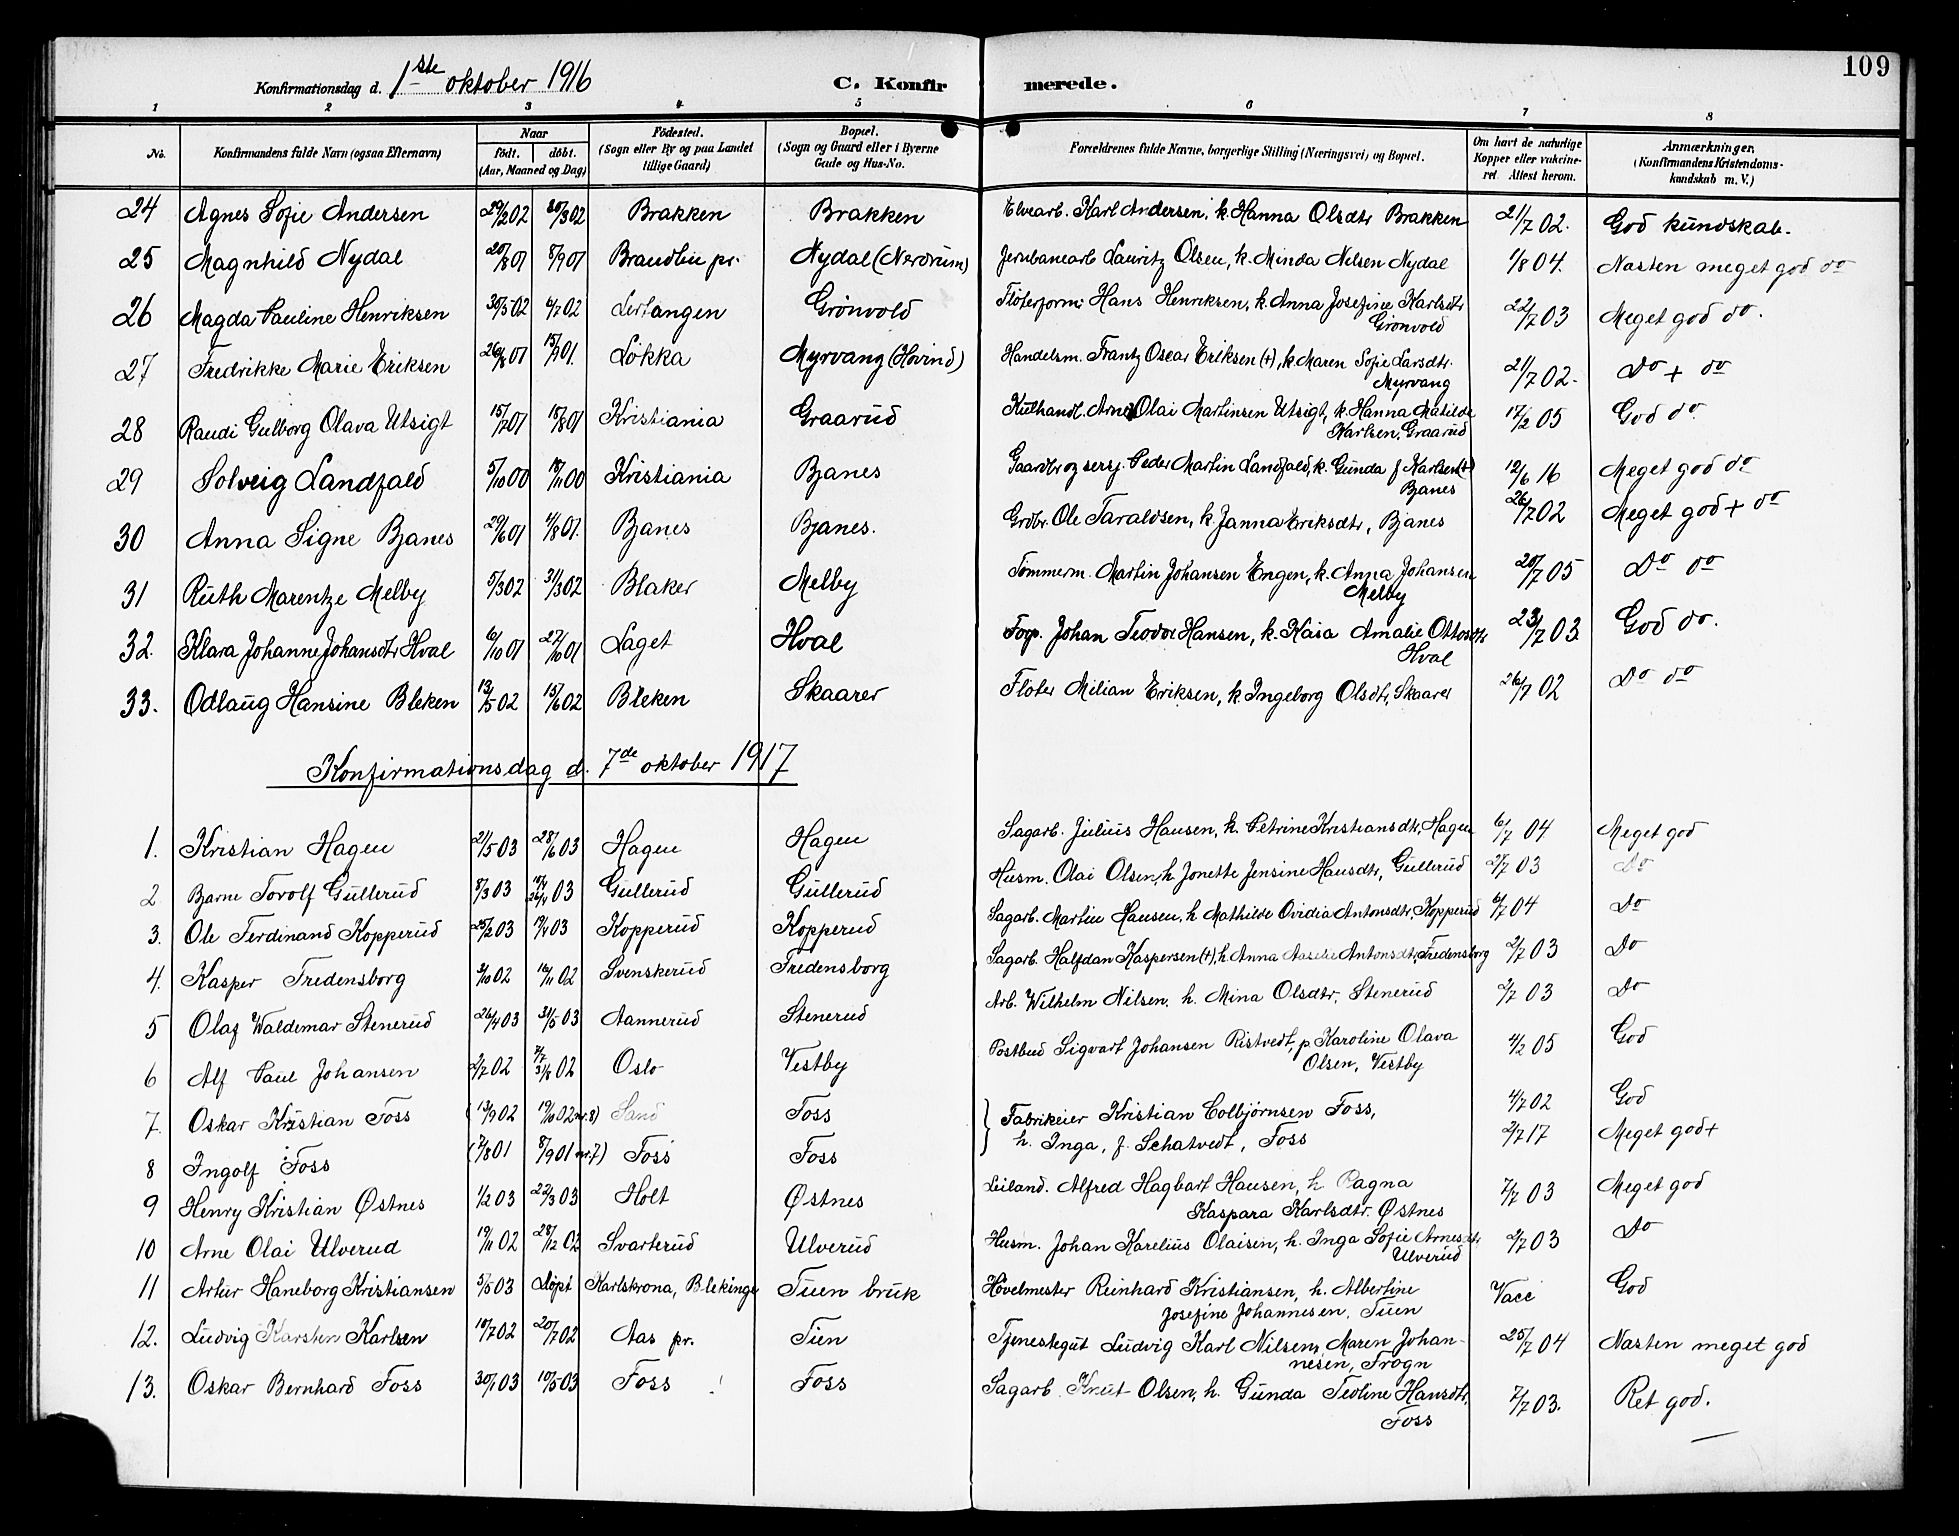 109
Konfirmationsdag d. 1ste oktober 1916 C. Konfir merede.
1 2 3 4 5 6 7 8
No. Konfirmandens fulde Navn (ogsaa Efternavn) Naar født. døbt. (Aar, Maaned og Dag) Fødested. (Sogn eller By og paa Landet tillige Gaard) Bopæl. (Sogn og Gaard eller i Byerne Gade og Hus-No. Forældrenes fulde Navne, borgerlige Stilling (Næringsvei) og Bopæl. Om havt de naturlige Kopper eller vakcineret. Attest herom. Anmærkninger. (Konfirmandens Kristendomskundskab m. V.)
24 Agnes Sofie Andersen 29/2 02 30/3 02 Brakken Brakken Elvearb. Karl Andersen, k. Hanna Olsdtr Brakken 21/7 02. God kundskab.
25 Magnhild Nydal 20/8 01 8/9 01 Braudbu pr. Nydal (Nerdrum) Jernbanearb Lauritz Olsen, k. Minda Nilsen Nydal 1/8 04. Næsten meget god do
26 Magda Pauline Henriksen 30/5 02 6/7 02 Lertangen Grönvold Flöterform. Hans Henriksen, k. Anna Josefine Karlsdtr
Grönvold 22/7 03 Meget god do.
27 Fredrikke Marie Eriksen 26/6 01 15/9 01. Lökka Myrvang (Hovind) Handelsm. Frantz Oscar Eriksen (+), k. Maren Sofie Larsdtr.
Myrvang 21/7 02. Do + do
28 Raudi Gulborg Olava Utsigt 15/7 01 18/8 01 Kristiania Graarud Kulhandl. Arne Olai Martinsen Utsigt, k. Hanna Matilde
Karlsen, Graarud 17/2 05 God do
29 Solveig Landfald 5/10 00 18/11 00 Kristiania Bjanes Gaardbr og sersj. Peder Martin Landfald, k. Gunda f Karlsen (+)
Bjanes 12/6 16 Meget god do
30 Anna Signe Bjanes 29/6 01 4/8 01. Bjanes Bjanes. Grdbr. Ole Taraldsen, k. Janna Eriksdtr, Bjanes 26/7 02 Meget god + do
31 Ruth Marentze Melby 5/3 02 31/3 02 Blaker Melby Tömmerm. Martin Johansen Engen, k. Anna Johansen
Melby 20/7 05 Do do
32. Klara Johanne Johansdtr Hval 6/10 01 27/10 01 Laget Hval Forp. Johan Teodor Hansen, k. Kaia Amalie Ottosdtr
Hval 23/7 03 God do.
33. Odlaug Hansine Bleken 13/5 02 15/6 02 Bleken Skaarer Flöter Milian Eriksen, k. Ingeborg Olsdtr, Skaarer 26/7 02 Do do
Konfirmationsdag d. 7de oktober 1917
1. Kristian Hagen 21/5 03 28/6 03 Hagen Hagen Sagarb. Julius Hansen, h. Petrine Kristiansdtr, Hagen 6/7 04 Meget god
2 Bjarne Torolf Gullerud 8/3 03 26/4 03 Gullerud Gullerud Husm. Olai Olsen, h Jonette Jensine Hansdtr, Gullerud 2/7 03 Do
3. Ole Ferdinand Kopperud 25/2 03 19/4 03 Kopperud Kopperud Sagarb. Martin Hansen, h Mathilde Ovidia Antonsdtr, Kopperud 6/7 04 Do
4. Kasper Fredensborg 3/10 02 16/11 02 Svenskerud Fredensborg Sagarb. Halfdan Kaspersen (+), h Anna Antonsdtr, Fredensborg 2/7 03 Do
5 Olaf Waldemar Stenerud 26/4 03 31/5 03 Aannerud Stenerud Arb. Wilhelm Nilsen, h. Mina Olsdtr, Stenerud 2/7 03 Do
6 Alf Paul Johansen 2/7 02 31/8 02 Oslo Vestby Postbud Sigvart Johansen Ristvedt, p Karoline Olava
Olsen, Vestby 4/2 05 God
7. Oskar Kristian Foss (13/9 02 19/10 02 nr. 8) Sand Foss Fabrikeier Kristian Colbjörnsen Foss, 4/7 02 God
8 Ingolf Foss (2/8 01 8/9 01 nr. 7) Foss Foss h. Inga, f. Schatvedt, Foss 2/7 17 Meget god+
9 Henry Kristian Østnes 1/2 03 22/3 03 Holt Østnes Leiland. Alfred Hagbart Hansen, h Ragna
Kaspara Karlsdtr. Østnes 7/7 03 Meget god
10 Arne Olai Ulverud 19/11 02 28/12 02 Svarterud Ulverud Husm. Johan Karelius Olaisen, h. Inga Sofie Arnesdtr
Ulverud 2/7 03 Do
11 Artur Haneborg Kristiansen 5/5 03 Döpt Karlskrona, Blekinge Tuen bruk Hövelmester Reinhard Kristiansen, h. Albertine
Josefine Johannesen, Tuen Vacc God
12. Ludvig Karsten Karlsen 10/7 02 20/7 02 Aas pr. Tien Tjenestegut Ludvig Karl Nilsen, Maren Johan-
nesen, Frogn 25/7 04 Næsten meget god
13. Oskar Bernhard Foss 30/1 03 10/5 03 Foss Foss Sagarb. Knut Olsen, h. Gunda Teoline Hansdtr,
Foss 7/7 03. Ret god.